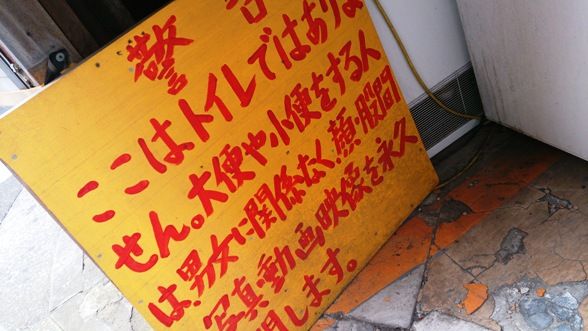 警告
ここはトイレではありま
せん。大便や小便をする人
は、男女に関係なく、顔・股間
写真・動画映像を永久
開します。